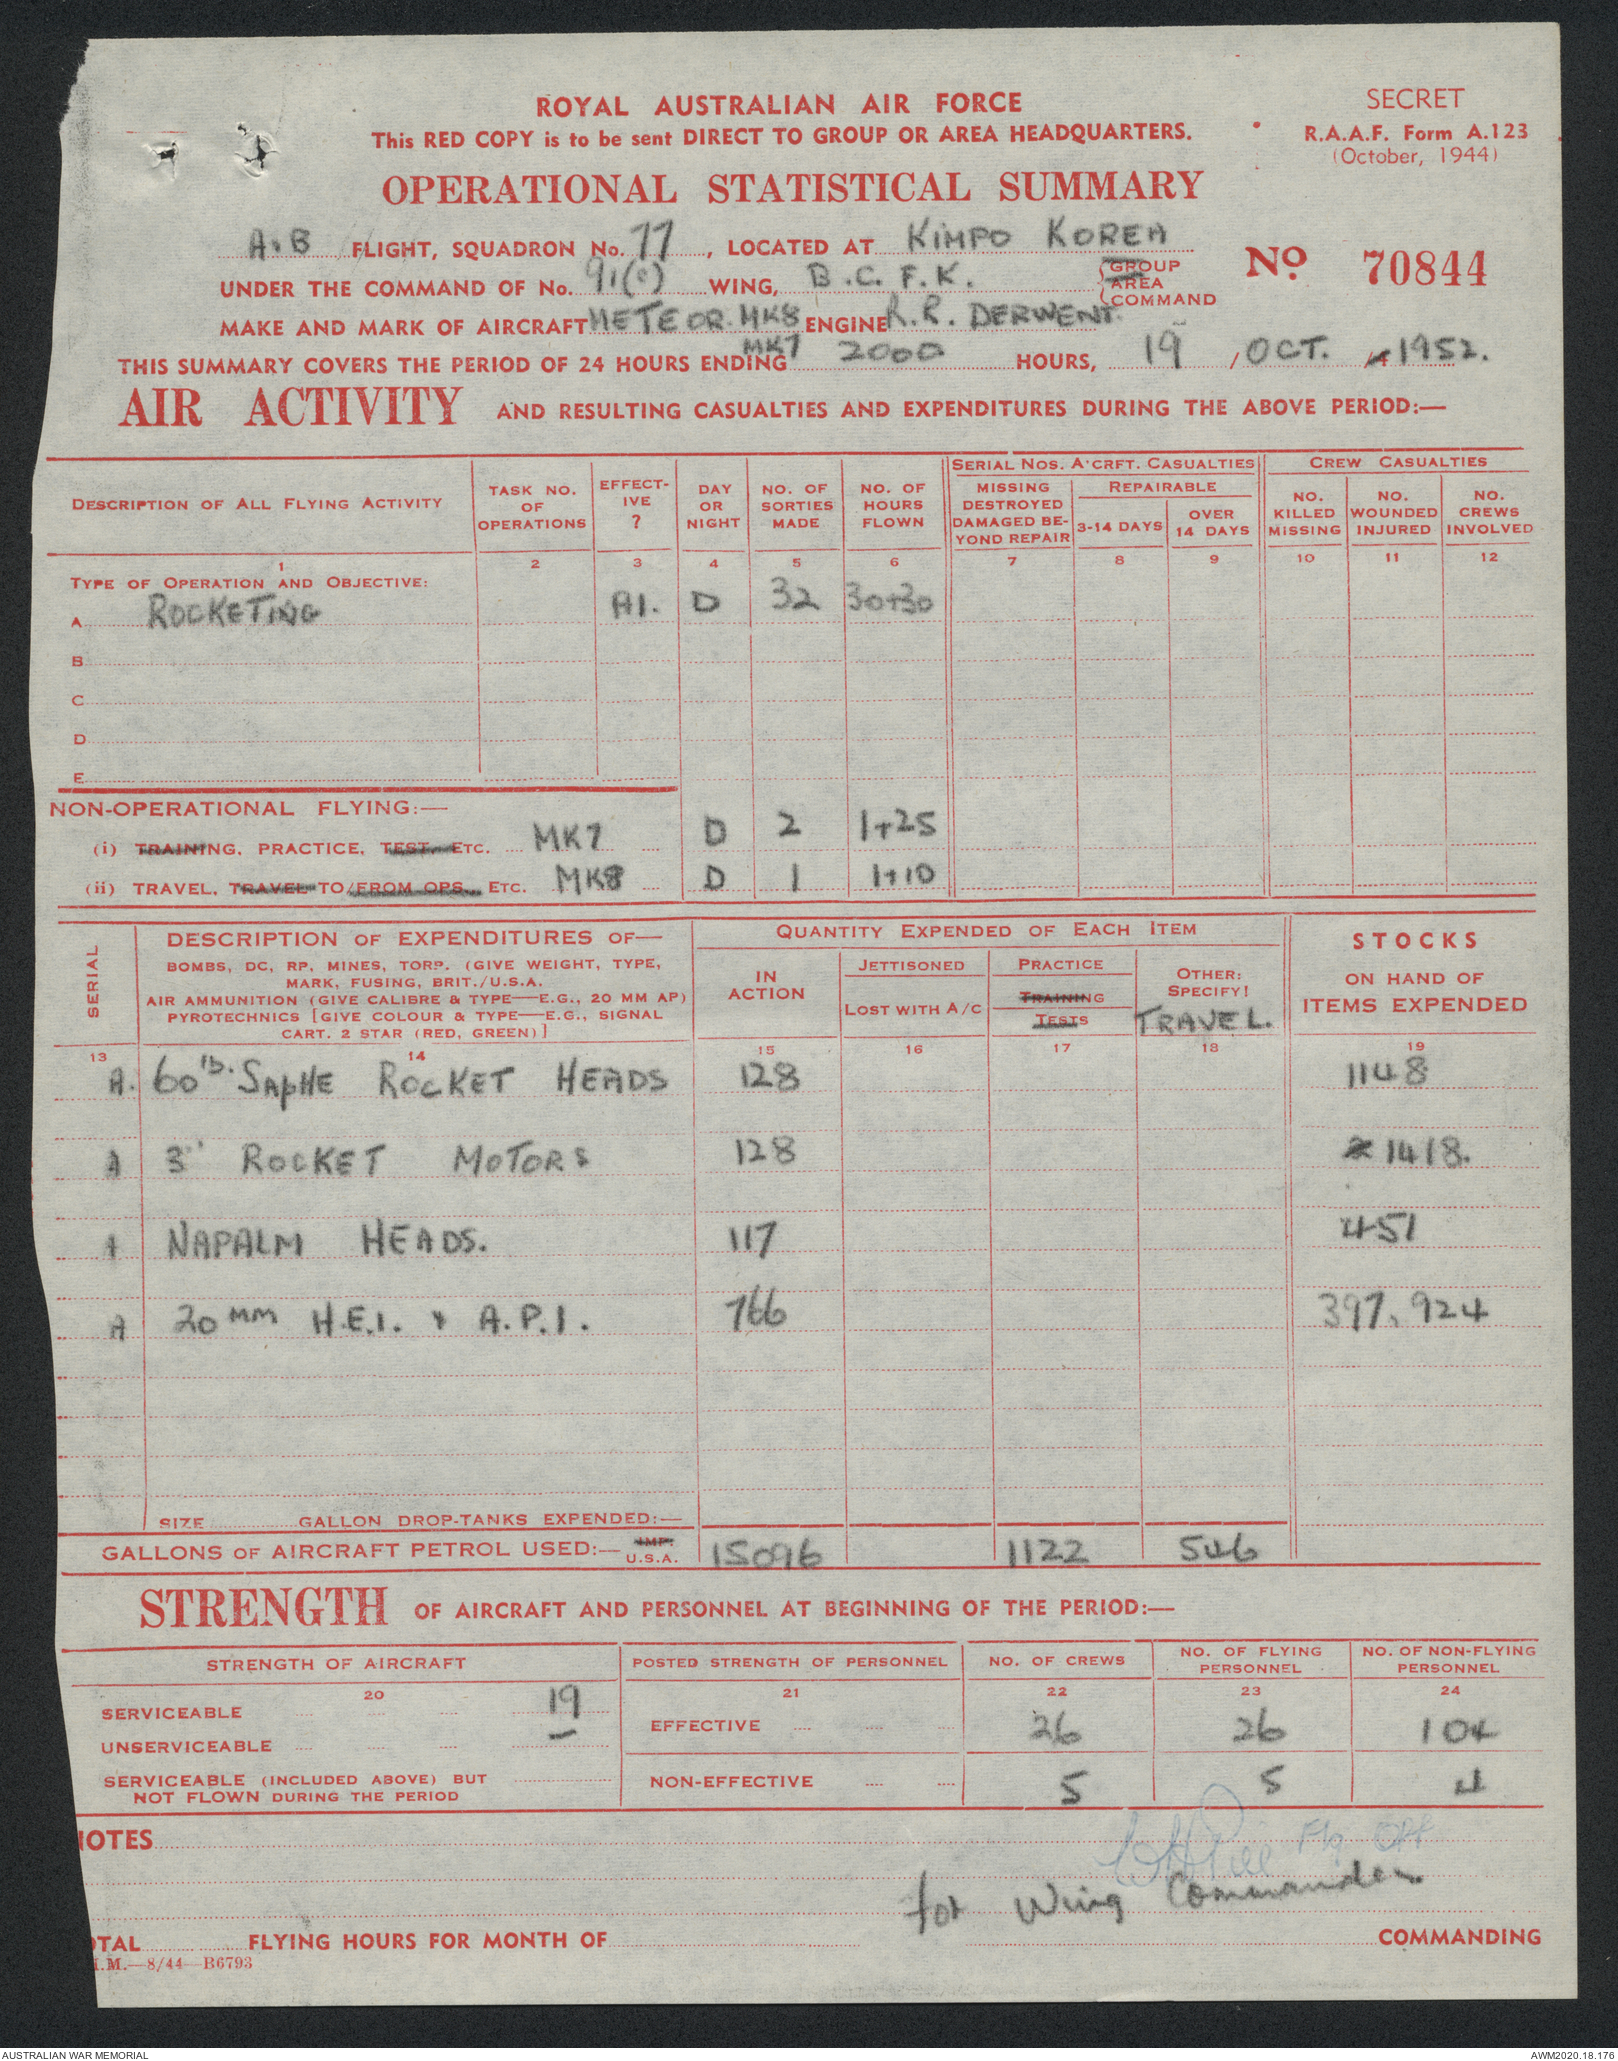 ROYAL AUSTRALIAN AIR FORCE
This RED COPY is to be sent DIRECT TO GROUP OR AREA HEADQUARTERS.
SECRET
R.A.A.F. Form A.123
(October, 1944)
OPERATIONAL STATISTICAL SUMMARY
A.B FLIGHT, SQUADRON No. 77, LOCATED AT KIMPO KOREA
UNDER THE COMMAND OF No. 91(C) WING, B.C.F.K. GROUP AREA COMMAND
No 70844
MAKE AND MARK OF AIRCRAFT METEOR. MK8 ENGINE R.R. DERWENT.
MK7
THIS SUMMARY COVERS THE PERIOD OF 24 HOURS ENDING 2000 HOURS, 19 / OCT. / 1952.
AIR ACTIVITY AND RESULTING CASUALTIES AND EXPENDITURES DURING THE ABOVE PERIOD:—
DESCRIPTION OF ALL FLYING ACTIVITY
TASK NO. OF OPERATIONS
EFFECT-IVE ?
DAY OR NIGHT
NO. OF SORTIES MADE
NO. OF HOURS FLOWN
SERIAL NOS. A'CRFT. CASUALTIES
MISSING DESTROYED DAMAGED BE-YOND REPAIR
REPAIRABLE
3-14 DAYS
OVER 14 DAYS
CREW CASUALTIES
NO. KILLED MISSING
NO. WOUNDED INJURED
NO. CREWS INVOLVED
1 2 3 4 5 6 7 8 9 10 11 12
TYPE OF OPERATION AND OBJECTIVE:
A ROCKETING A1. D 32 30+30
B
C
D
E
NON-OPERATIONAL FLYING:—
(i) TRAINING, PRACTICE, TEST, ETC. MK7 D 2 1+25
(ii) TRAVEL, TRAVEL TO/FROM OPS., ETC. MK8 D 1 1+10
SERIAL
DESCRIPTION OF EXPENDITURES OF—
BOMBS, DC, RP, MINES, TORP. (GIVE WEIGHT, TYPE,
MARK, FUSING, BRIT./U.S.A.
AIR AMMUNITION (GIVE CALIBRE & TYPE—E.G., 20 MM AP)
PYROTECHNICS [GIVE COLOUR & TYPE—E.G., SIGNAL
CART. 2 STAR (RED, GREEN)]
QUANTITY EXPENDED OF EACH ITEM
IN ACTION
JETTISONED
LOST WITH A/C
PRACTICE
TRAINING
TESTS
OTHER: SPECIFY!
TRAVEL.
STOCKS
ON HAND OF
ITEMS EXPENDED
13 14 15 16 17 18 19
A. 60 lb. SAPHE ROCKET HEADS 128 1148
A 3" ROCKET MOTORS 128 1418.
A NAPALM HEADS. 117 451
A 20 MM H.E.I. & A.P.I. 766 397,924
SIZE GALLON DROP-TANKS EXPENDED:—
GALLONS OF AIRCRAFT PETROL USED:— IMP. U.S.A. 15096 1122 546
STRENGTH OF AIRCRAFT AND PERSONNEL AT BEGINNING OF THE PERIOD:—
STRENGTH OF AIRCRAFT
POSTED STRENGTH OF PERSONNEL
NO. OF CREWS
NO. OF FLYING PERSONNEL
NO. OF NON-FLYING PERSONNEL
20 21 22 23 24
SERVICEABLE 19
EFFECTIVE 26 26 104
UNSERVICEABLE —
SERVICEABLE (INCLUDED ABOVE) BUT
NOT FLOWN DURING THE PERIOD
NON-EFFECTIVE 5 5 4
NOTES
Flg Off
for Wing Commander
OTAL FLYING HOURS FOR MONTH OF COMMANDING
I.M.—8/44—B6793
AUSTRALIAN WAR MEMORIAL
AWM2020.18.176